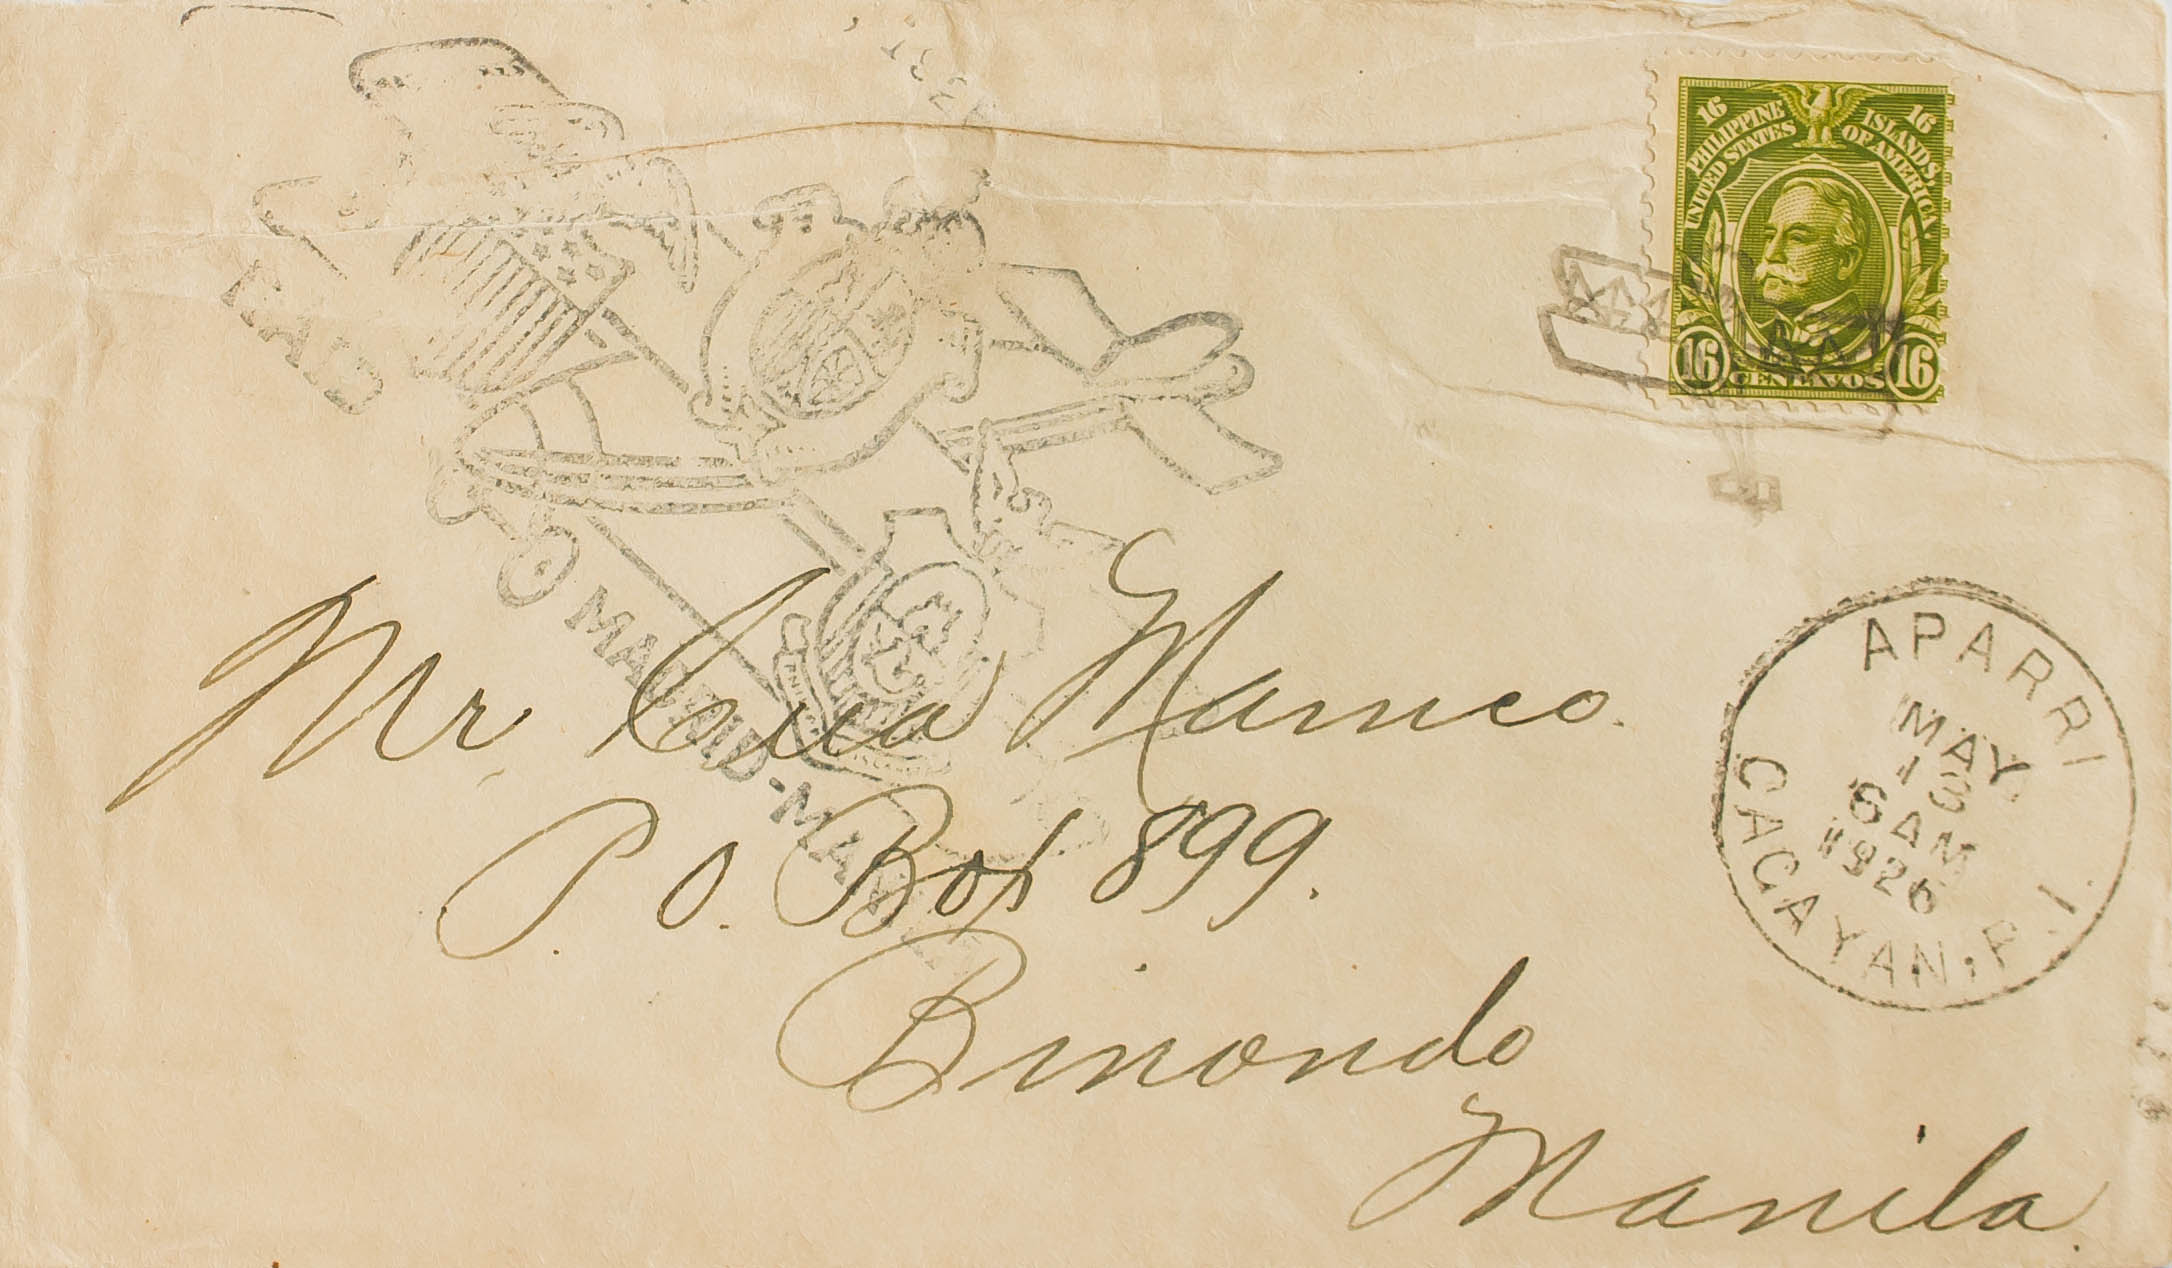 16 16
PHILIPPINE ISLANDS,
UNITED STATES OF AMERICA
16 CENTAVOS 16
RAID
MADRID-MANILA
APARRI
MAY
13
6 AM
1926
CAGAYAN, P. I.
Mr. Cua Mamco.
P. O. Box 899.
Binondo
Manila.